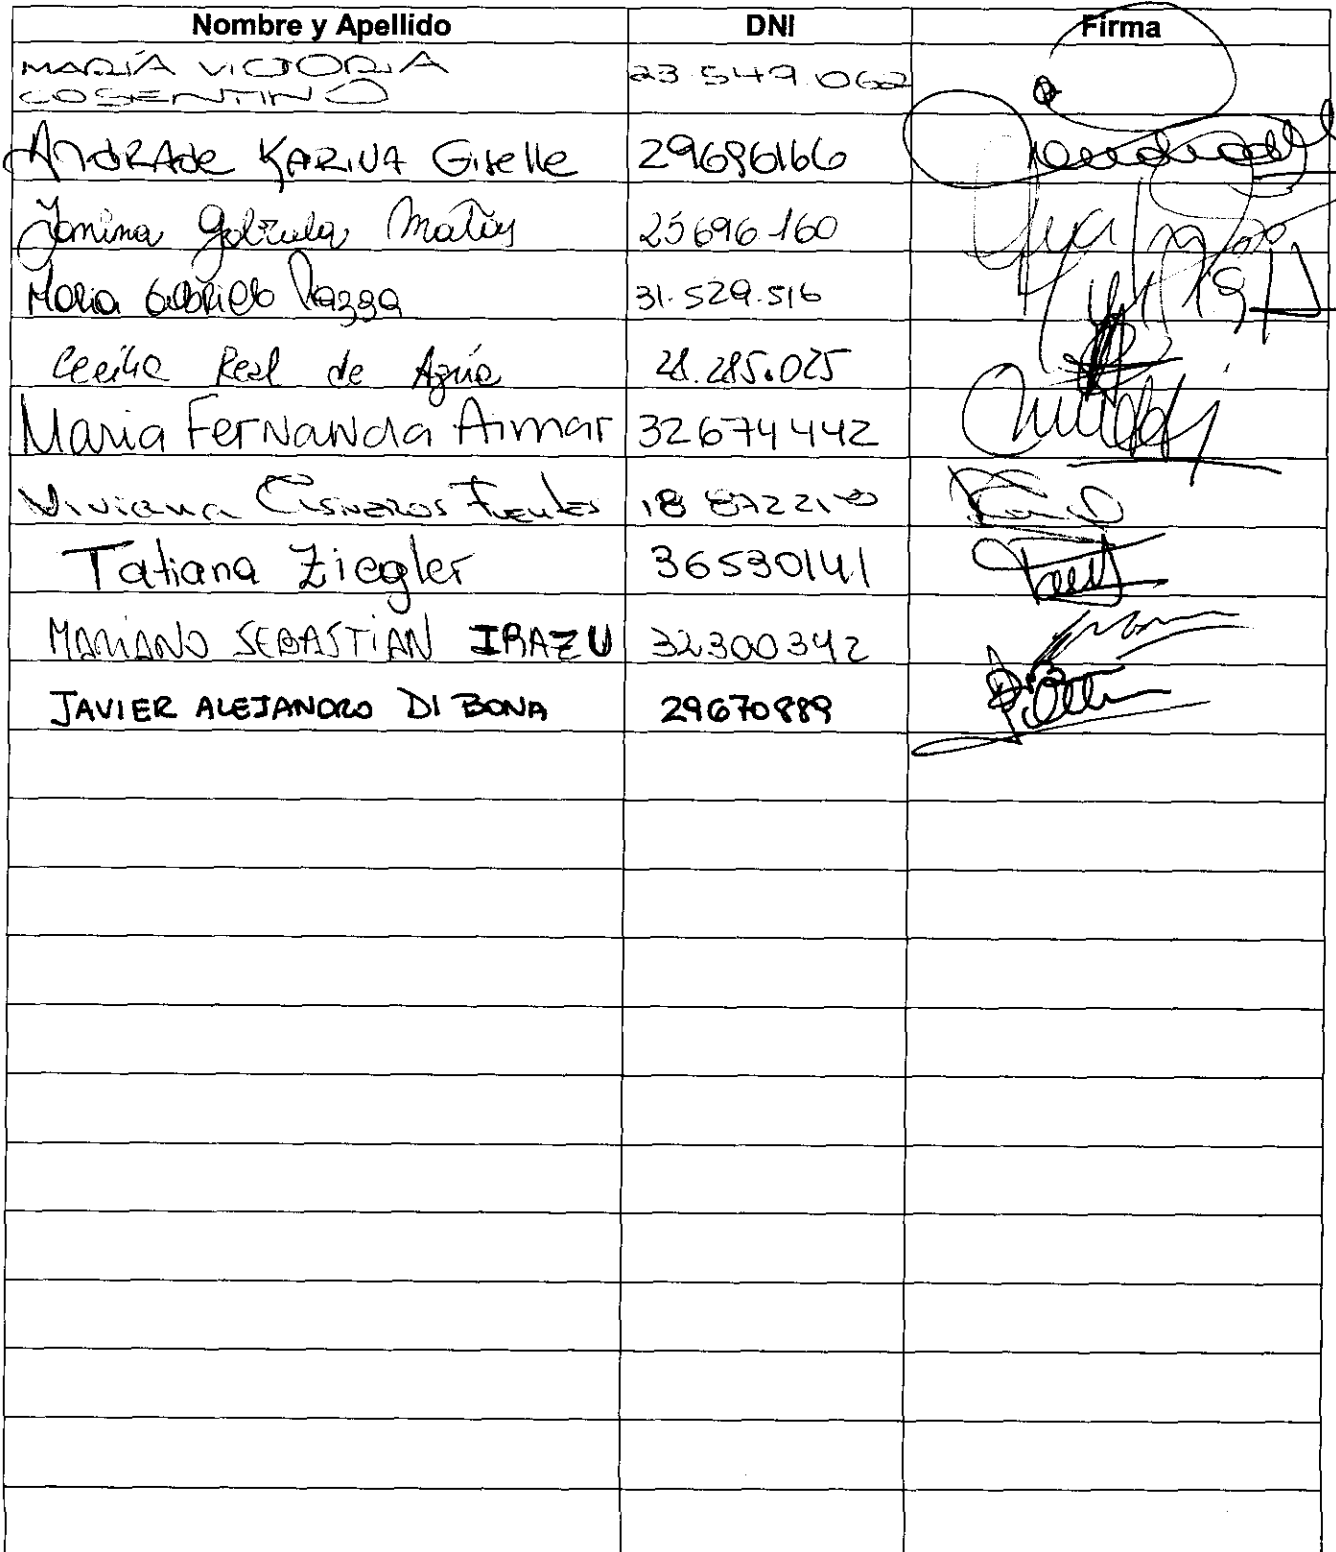 Nombre y Apellido DNI Firma
MARÍA VICTORIA 23.549.062
COSENTINO
ANDRADE KARINA Giselle 29696166
Yanina Matías 25696160
Maria Gabriela 31.529.516
Cecilia Real de Azúa 28.285.025
Maria Fernanda Aimar 32674442
Viviana Cisneros Fuentes
Tatiana Ziegler 36530141
MARIANO SEBASTIAN IRAZU 32300342
JAVIER ALEJANDRO DI BONA 29670889